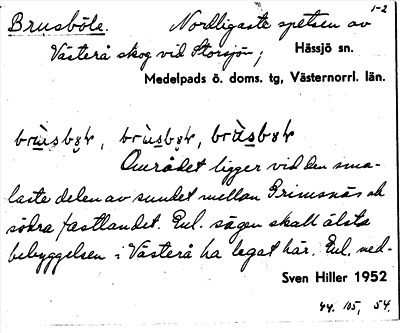 1-2
Brusböle. Nordligaste spetsen av
Västerå skog vid Storsjön; Hässjö sn.
Medelpads ö. doms. tg, Västernorrl. län.
Området ligger vid den sma-
laste delen av sundet mellan Grimsnäs och
södra fastlandet. Enl. sägen skall älsta
bebyggelsen i Västerå ha legat här. Enl. ned-
Sven Hiller 1952
44. 105, 54.